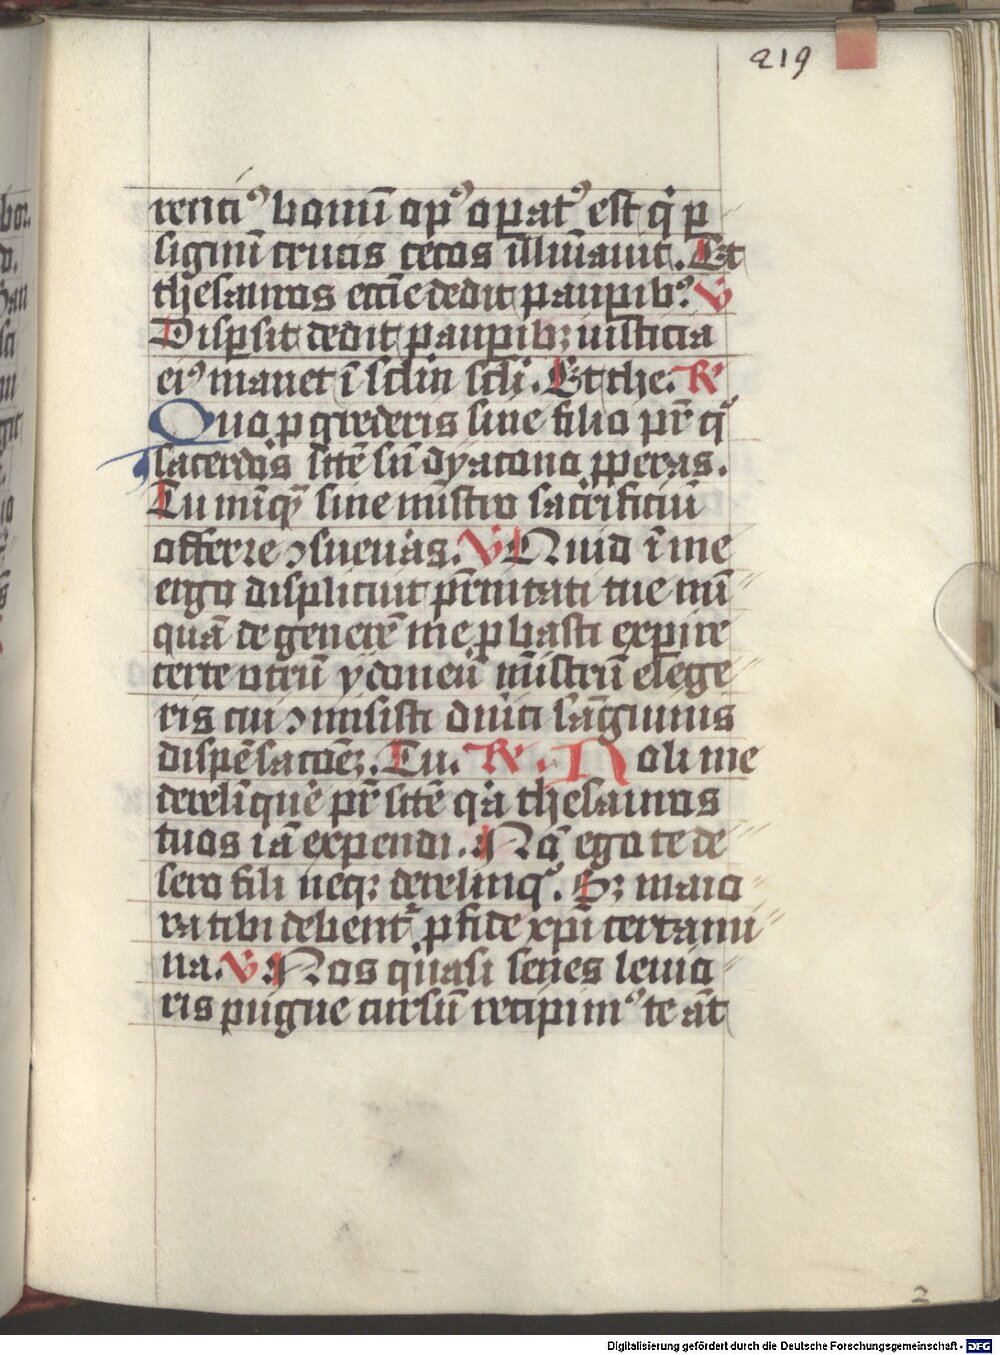 219
renciꝰ bonū opꝰ oꝑatꝰ est q̇ ꝑ
signū crucis cecos illūinauit. Et
thesauros eccīe dedit pauꝑibꝰ. V
Disꝑsit dedit pauꝑibꝫ iusticia
eiꝰ manet ī sclm̄ scl̄i. Et the. R
Quo ꝓgrederis sine filio pr̄ q°
sacerdos sc̄te sn̄ dyacono ꝓperas.
Tu nūq̄ sine mīstro sacrificiū
offerre ꝯsueuas. V Quid ī me
ergo displicuit pr̄nitati tue nū
quā degenerē me ꝓbasti expire
certe utrū ydoneū mīstrū elege
ris cui ꝯmisisti dnīci sāguinis
dispēsatōeꝫ. Tu. R. Noli me
derelīquē pr̄ sc̄te qͥa thesauros
tuos iā expendi. Nō ego te de
sero fili neqꝫ derelinqͦ. Sꝫ maio
ra tibi debentᷣ ꝓ fide xp̄i certami
na. V Nos quasi senes leuio
ris pugne cursū recipimꝰ te aūt
2
Digitalisierung gefördert durch die Deutsche Forschungsgemeinschaft - DFG